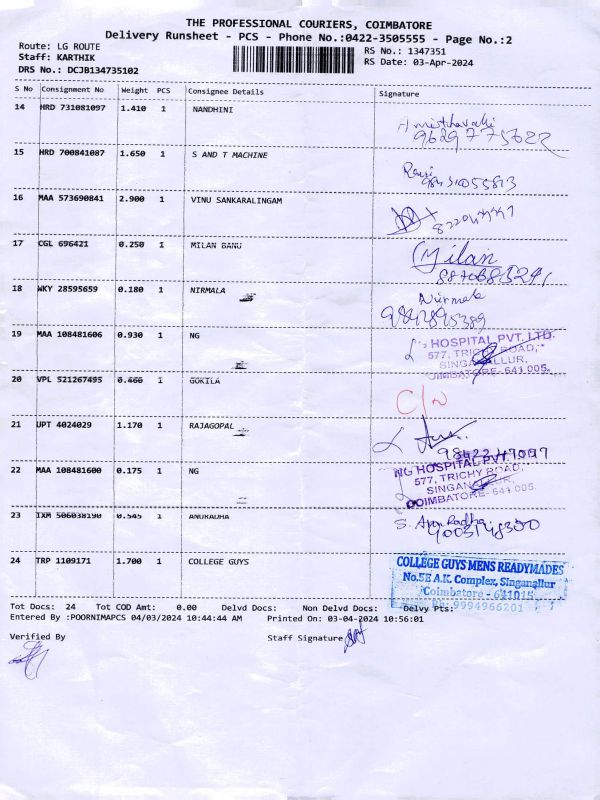 THE PROFESSIONAL COURIERS, COIMBATORE
Delivery Runsheet - PCS - Phone No.:0422-3505555 - Page No.:2
Route: LG ROUTE
RS No.: 1347351
Staff: KARTHIK
RS Date: 03-Apr-2024
DRS No.: DCJB134735102
S No Consignment No Weight PCS Consignee Details Signature
14 HRD 731081097 1.410 1 NANDHINI
15 HRD 700841087 1.650 1 S AND T MACHINE
16 MAA 573690841 2.900 1 VINU SANKARALINGAM
17 CGL 696421 0.250 1 MILAN BANU
Milan
18 WKY 28595659 0.180 1 NIRMALA
Nirmala
9842895389
19 MAA 108481606 0.930 1 NG
HOSPITAL PVT. LTD.
577, TRICHY ROAD,
SINGANALLUR,
COIMBATORE- 641 005.
20 VPL 521267495 0.466 1 GOKILA
C/N
21 UPT 4024029 1.170 1 RAJAGOPAL
22 MAA 108481600 0.175 1 NG
NG HOSPITAL PVT. LTD.
577, TRICHY ROAD,
SINGANALLUR,
COIMBATORE- 641 005.
23 IXM 506038190 0.545 1 ANURADHA
S. Anu Radha
24 TRP 1109171 1.700 1 COLLEGE GUYS
COLLEGE GUYS MENS READYMADES
No.5E A.K. Complex, Singanallur
Coimbatore - 641015
9994966201
Tot Docs: 24 Tot COD Amt: 0.00 Delvd Docs: Non Delvd Docs: Delvy Pts:
Entered By :POORNIMAPCS 04/03/2024 10:44:44 AM Printed On: 03-04-2024 10:56:01
Verified By Staff Signature